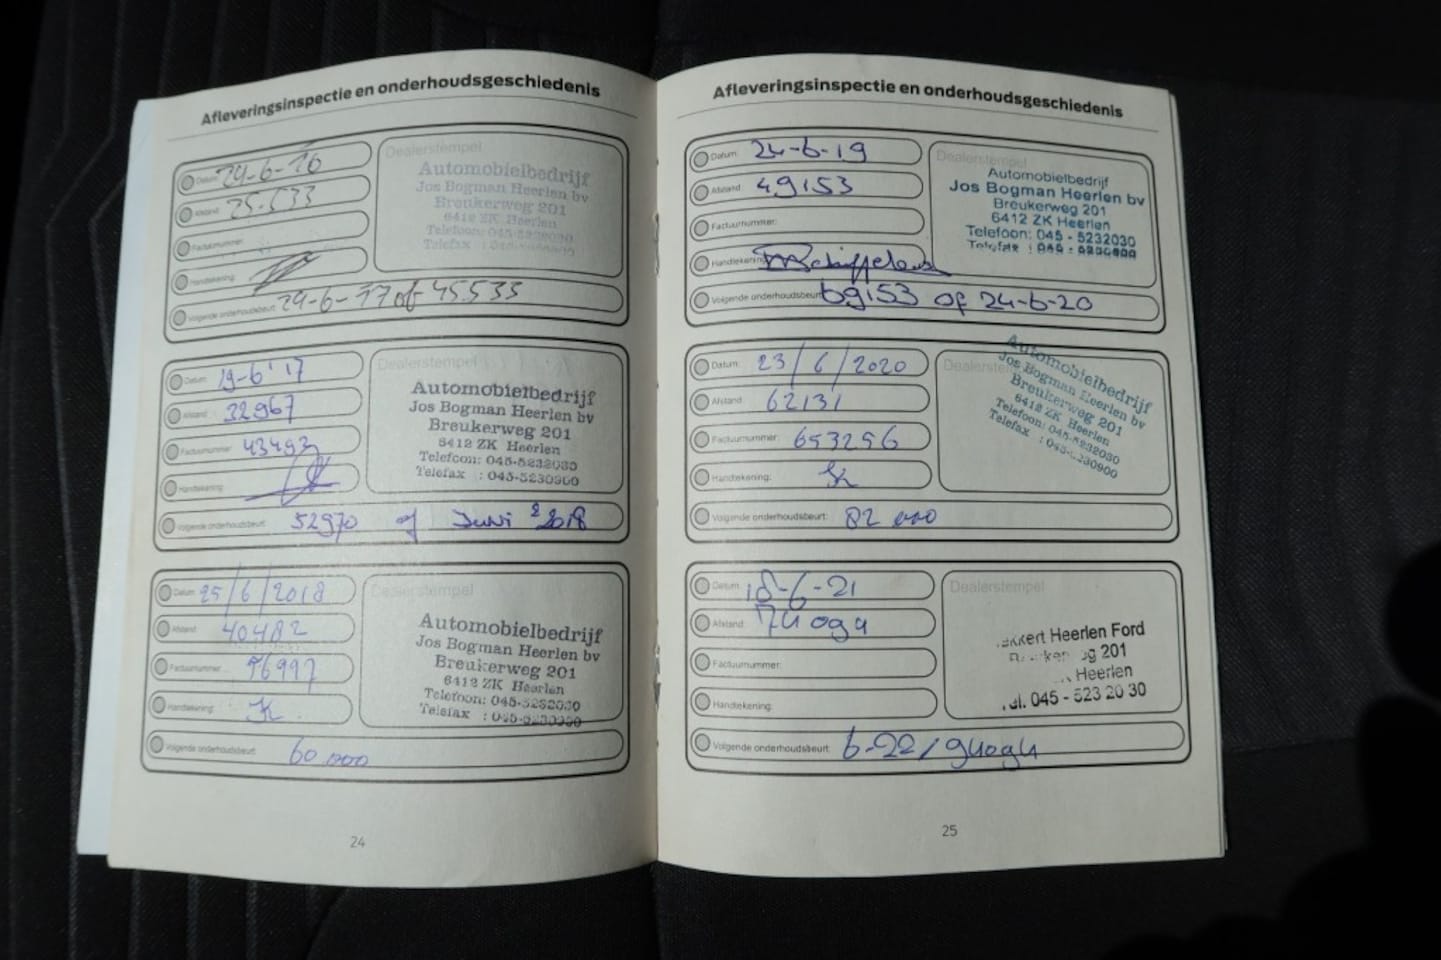 Afleveringsinspectie en onderhoudsgeschiedenis
Datum: 29-6-16
Afstand: 25.533
Factuurnummer:
Handtekening:
Volgende onderhoudsbeurt: 29-6-17 of 45.533
Dealerstempel
Automobielbedrijf
Jos Bogman Heerlen bv
Breukerweg 201
6412 ZK Heerlen
Telefoon: 045-5232030
Telefax :
Datum: 19-6'17
Afstand: 32967
Factuurnummer: 43493
Handtekening:
Volgende onderhoudsbeurt: 52970 of Juni 2018
Dealerstempel
Automobielbedrijf
Jos Bogman Heerlen bv
Breukerweg 201
6412 ZK Heerlen
Telefoon: 045-5232030
Telefax : 045-5230900
Datum: 25/6/2018
Afstand: 40482
Factuurnummer: 76997
Handtekening:
Volgende onderhoudsbeurt: 60.000
Dealerstempel
Automobielbedrijf
Jos Bogman Heerlen bv
Breukerweg 201
6412 ZK Heerlen
Telefoon: 045-5232030
Telefax : 045-5230900
24
Afleveringsinspectie en onderhoudsgeschiedenis
Datum: 24-6-19
Afstand: 49153
Factuurnummer:
Handtekening:
Volgende onderhoudsbeurt: 69153 of 24-6-20
Dealerstempel
Automobielbedrijf
Jos Bogman Heerlen bv
Breukerweg 201
6412 ZK Heerlen
Telefoon: 045 - 5232030
Telefax : 045 - 5230900
Datum: 23/6/2020
Afstand: 62131
Factuurnummer: 653256
Handtekening:
Volgende onderhoudsbeurt: 82 000
Dealerstempel
Automobielbedrijf
Jos Bogman Heerlen bv
Breukerweg 201
6412 ZK Heerlen
Telefoon: 045-5232030
Telefax : 045-5230900
Datum: 18-6-21
Afstand: 74094
Factuurnummer:
Handtekening:
Volgende onderhoudsbeurt: 6-22 / 94094
Dealerstempel
Heerlen Ford
201
Heerlen
Tel. 045 - 523 20 30
25